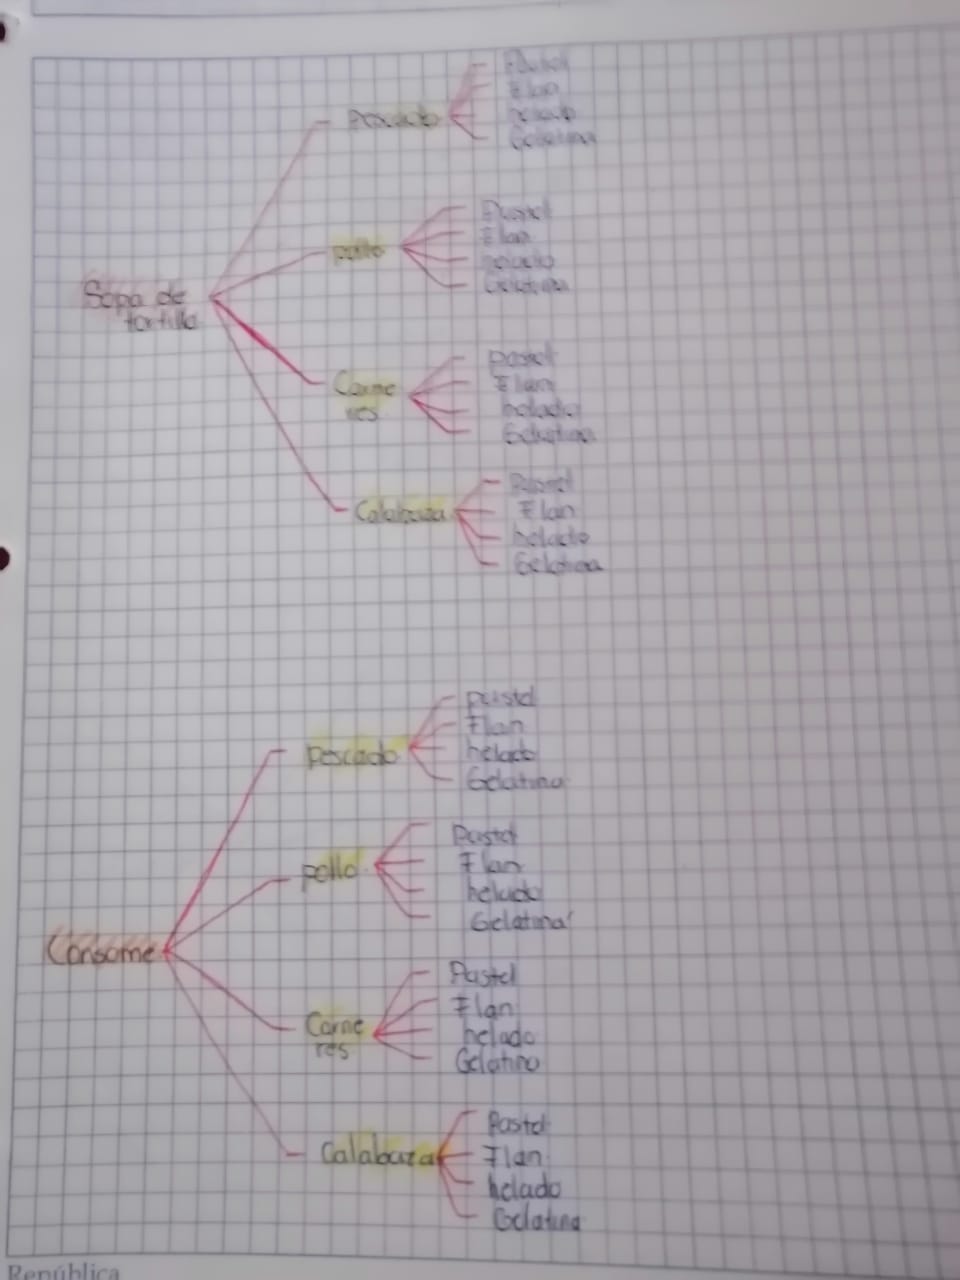 Pescado
Pastel
Flan
helado
Gelatina
pollo
Pastel
Flan
helado
Gelatina
Sopa de
tortilla
Carne
res
pastel
Flan
helado
Gelatina
Calabaza
Pastel
Flan
helado
Gelatina
pescado
pastel
Flan
helado
Gelatina
pollo
Pastel
Flan
helado
Gelatina
Consome
Carne
res
Pastel
Flan
helado
Gelatina
Calabaza
Pastel
Flan
helado
Gelatina
República